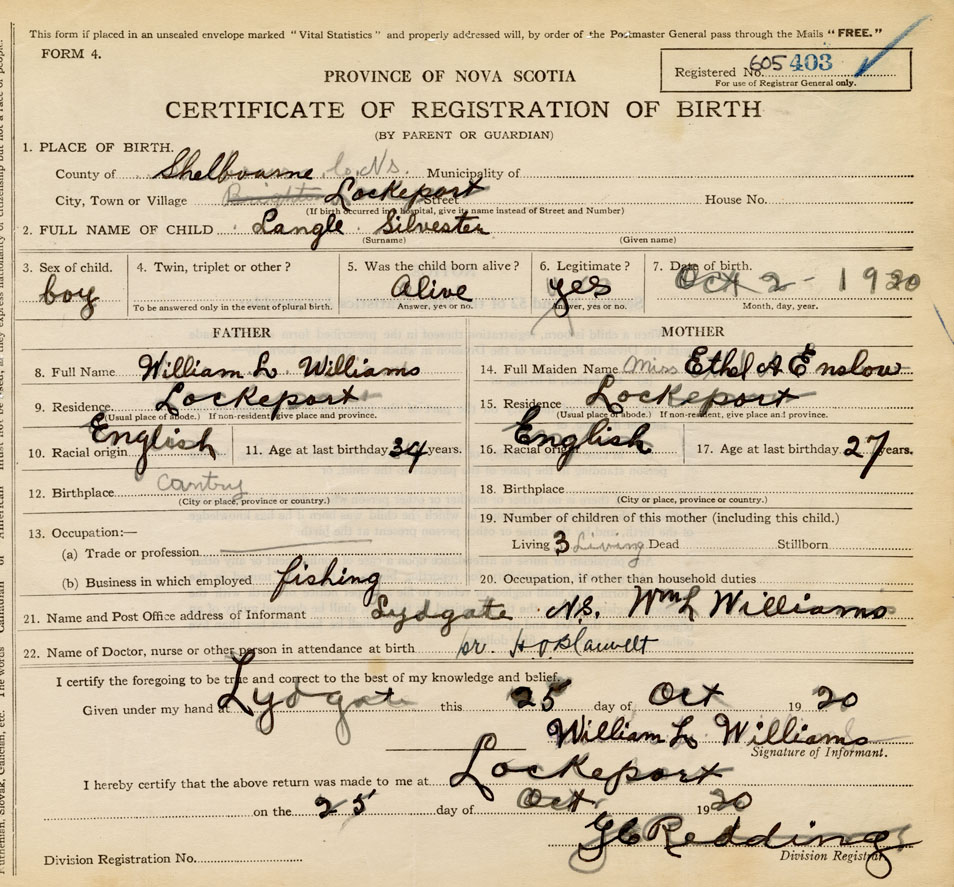 This form if placed in an unsealed envelope marked "Vital Statistics" and properly addressed will, by order of the Postmaster General pass through the Mails "FREE."
FORM 4.
Registered No. 605 403
For use of Registrar General only.
PROVINCE OF NOVA SCOTIA
CERTIFICATE OF REGISTRATION OF BIRTH
(BY PARENT OR GUARDIAN)
1. PLACE OF BIRTH.
County of Shelbourne Co. N.S. Municipality of
City, Town or Village Brighton Lockeport Street House No.
(If birth occurred in a hospital, give its name instead of Street and Number)
2. FULL NAME OF CHILD Langle Silvester
(Surname) (Given name)
3. Sex of child. 4. Twin, triplet or other? 5. Was the child born alive? 6. Legitimate? 7. Date of birth.
boy Alive yes Oct 2 - 1920
To be answered only in the event of plural birth. Answer, yes or no. Answer, yes or no. Month, day, year.
FATHER MOTHER
8. Full Name William L. Williams 14. Full Maiden Name Miss Ethel A Enslow
9. Residence Lockeport 15. Residence Lockeport
(Usual place of abode.) If non-resident, give place and province. (Usual place of abode.) If non-resident, give place and province.
10. Racial origin English 11. Age at last birthday 34 years. 16. Racial origin English 17. Age at last birthday 27 years.
12. Birthplace Cantry 18. Birthplace
(City or place, province or country.) (City or place, province or country.)
13. Occupation:— 19. Number of children of this mother (including this child.)
(a) Trade or profession Living 3 Living Dead Stillborn
(b) Business in which employed fishing 20. Occupation, if other than household duties
21. Name and Post Office address of Informant Lydgate N.S. Wm L Williams
22. Name of Doctor, nurse or other person in attendance at birth Dr. H O Blauvelt
I certify the foregoing to be true and correct to the best of my knowledge and belief.
Given under my hand at Lydgate this 25 day of Oct 1920
William L Williams
Signature of Informant.
I hereby certify that the above return was made to me at Lockeport
on the 25 day of Oct. 1920
Redding
Division Registration No. Division Registrar